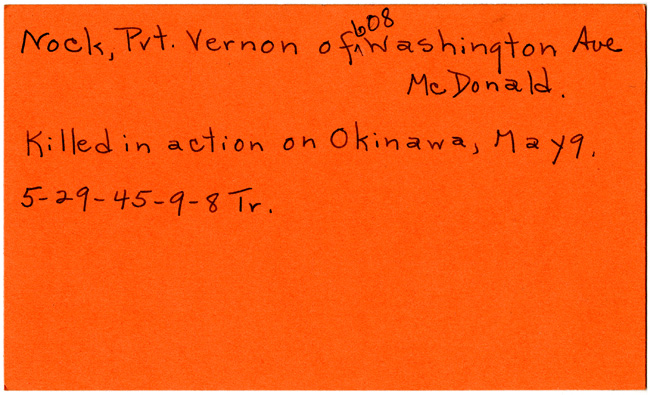 Nock, Pvt. Vernon of ^608 Washington Ave
McDonald.
Killed in action on Okinawa, May 9.
5-29-45-9-8 Tr.